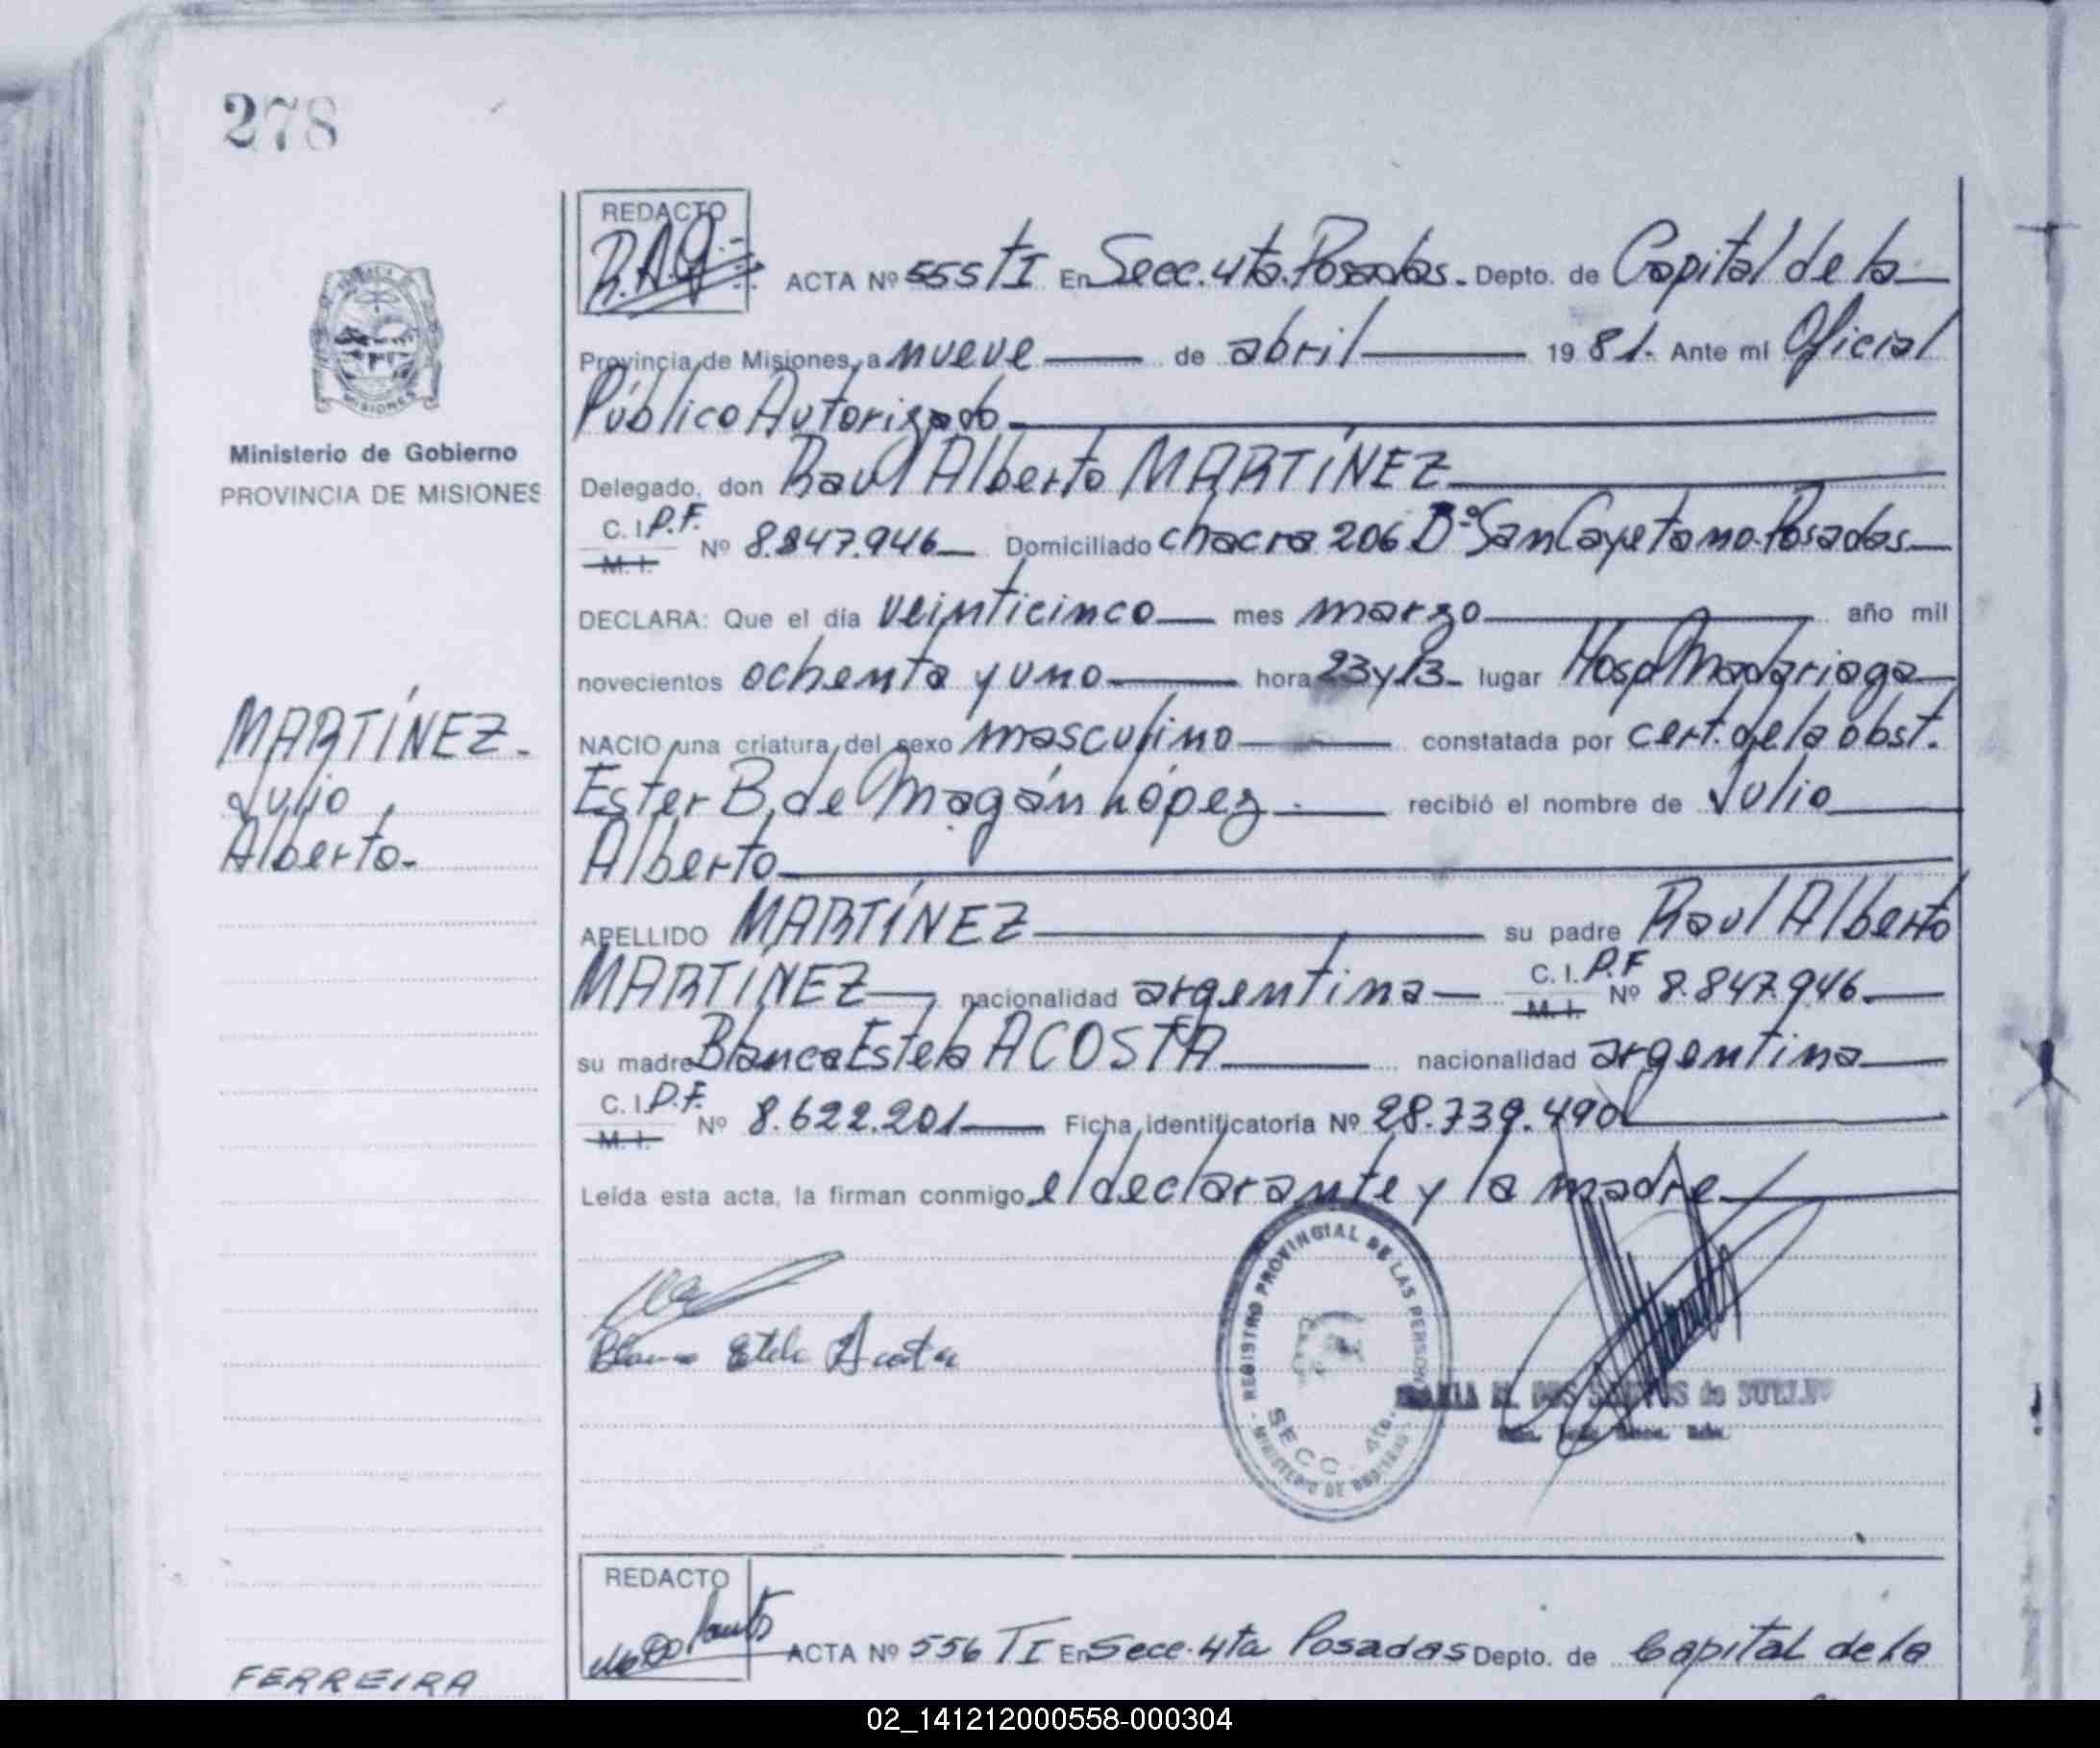 278
REDACTO
R.A.G.
ACTA Nº 555 TI En Secc. 4ta. Posadas. Depto. de Capital de la
Provincia de Misiones, a nueve de abril 1981. Ante mí Oficial
Público Autorizado
Delegado, don Raul Alberto MARTÍNEZ
C. I. P.F.
M. I.
Nº 8.847.946 Domiciliado chacra 206 Bº San Cayetano. Posadas
DECLARA: Que el día veinticinco mes marzo año mil
novecientos ochenta y uno hora 23 y 13 lugar Hosp Madariaga
NACIO una criatura del sexo masculino constatada por cert. de la obst.
Ester B. de Magán López. recibió el nombre de Julio
Alberto
APELLIDO MARTÍNEZ su padre Raul Alberto
MARTÍNEZ nacionalidad argentina C. I. P.F M. I. Nº 8.847.946.
su madre Blanca Estela ACOSTA nacionalidad argentina
C. I. P.F. M. I. Nº 8.622.201 Ficha identificatoria Nº 28.739.490
Leída esta acta, la firman conmigo, el declarante y la madre
Blanca Estela Acosta
REGISTRO PROVINCIAL DE LAS PERSONAS
SECC. 4ta.
MINISTERIO DE GOBIERNO
DOS SANTOS de
Ministerio de Gobierno
PROVINCIA DE MISIONES
MISIONES
MARTÍNEZ.
Julio
Alberto.
REDACTO
ACTA Nº 556 TI En Secc. 4ta Posadas Depto. de Capital de la
FERREIRA
02_141212000558-000304